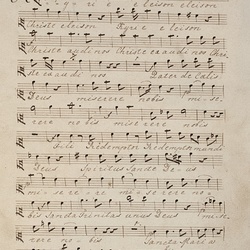 Kyrie eleison eleison
Christe eleison Kyrie eleison
Christe audi nos Christe exaudi nos Chris
te exaudi nos Pater de Cœlis
Deus miserere nobis mise-
rere nobis miserere nobis
Fili Redemptor Redemptor mundi
Deus Spiritus Sancte De-us
mi-se-re-re miserere no-
bis Sancta Trinitas unus Deus mise-
rere no-bis Sancta Maria